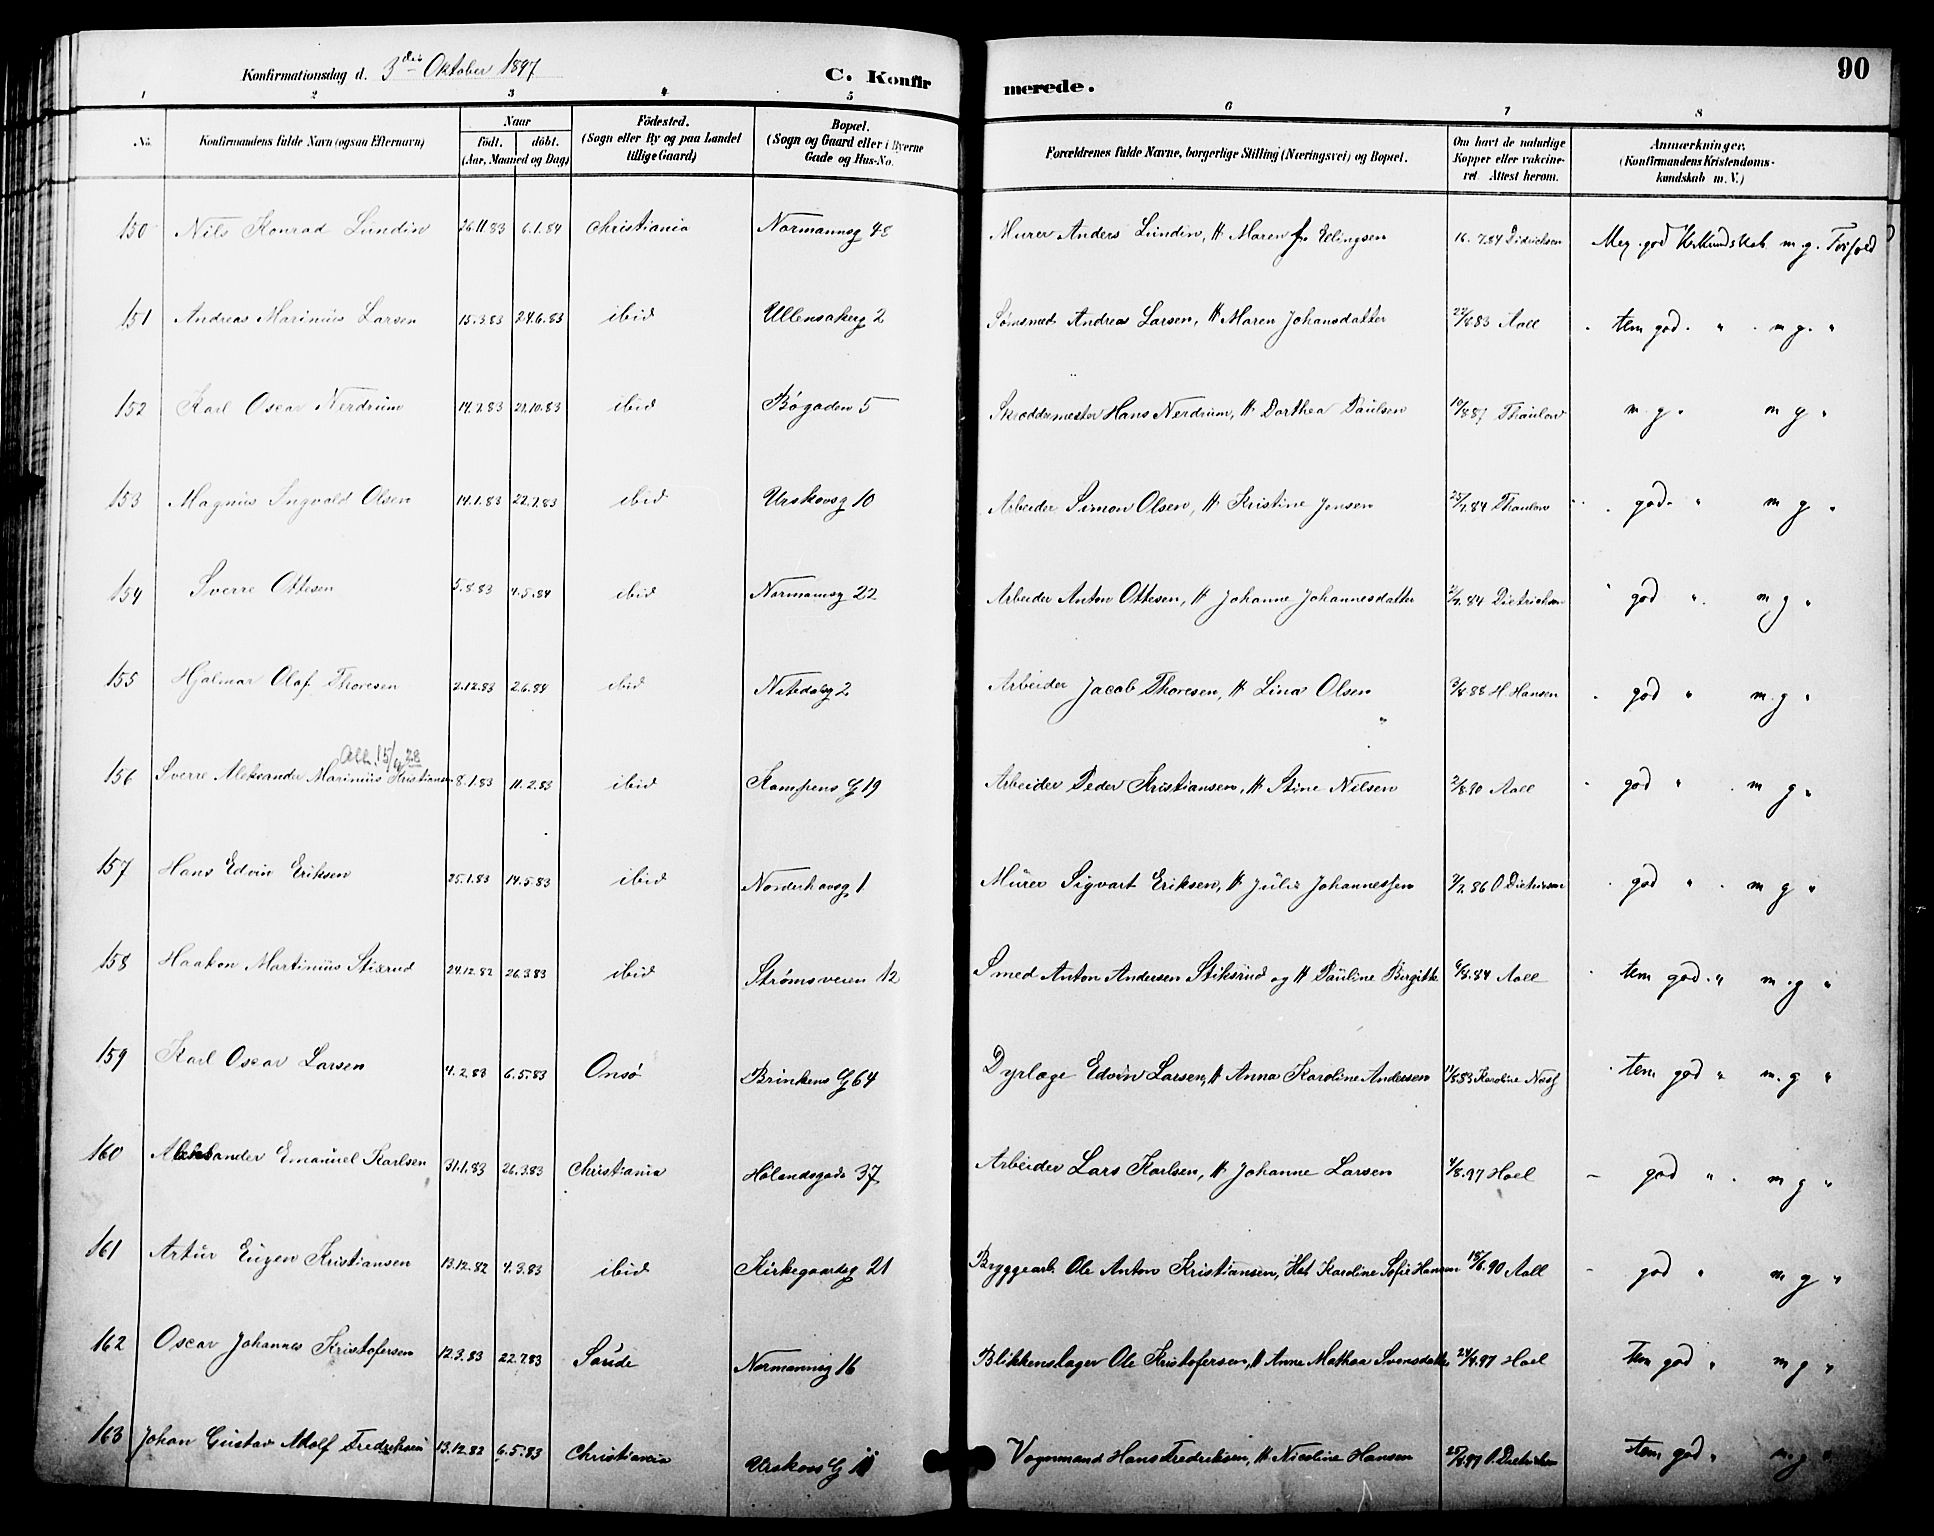 Konfirmationsdag d. 3die Oktober 1897 C. Konfirmerede. 90
1 2 3 4 5 6 7 8
No. Konfirmandens fulde Navn (ogsaa Efternavn) Naar födt. döbt. (Aar, Maaned og Dag) Födested. (Sogn eller By og paa Landet tillige Gaard) Bopæl. (Sogn og Gaard eller i Byerne Gade og Hus-No. Forældrenes fulde Navne, borgerlige Stilling (Næringsvei) og Bopæl. Om havt de naturlige Kopper eller vakcineret. Attest herom. Anmærkninger. (Konfirmandens Kristendomskundskab m. V.)
150 Nils Konrad Lundin 26.11.83 6.1.84 Christiania Normannsg 48 Murer Anders Lundin, H Maren f. Ellingsen 16.7.84 Didrichsen Meg. god Kr.Kundskab m. g. Forhold
151 Andreas Marinius Larsen 15.3.83 24.6.83 ibid Ullensakerg 2 Sømsmed Andreas Larsen, H Maren Johansdatter 22/8 83 Aall tem god. " m g. "
152 Karl Oscar Nerdrum 14.7.83 21.10.83 ibid Bøgaden 5 Skræddermester Hans Nerdrum, H Dorthea Paulsen 10/8 87 Thaulow m. g. m g "
153 Magnus Ingvald Olsen 14.1.83 22.7.83 ibid Urskovsg 10 Arbeider Simon Olsen, H Kristine Jensen 25/7.84 Thaulow god " m g "
154 Sverre Ottesen 5.8.83 4.5.84 ibid Normannsg 22 Arbeider Anton Ottesen, H Johanne Johannesdatter 2/7.84 Dietrichson god " m g "
155 Hjalmar Olaf Thoresen 2.12.83 2.6.84 ibid Nitedalsg 2 Arbeider Jacob Thoresen, H Lina Olsen 3/8.88 H. Hansen god " m. g "
Att. 15/4 28
156 Sverre Aleksander Marinius Kristiansen 8.1.83 11.2.83 ibid Kampens G 19 Arbeider Peder Kristiansen, H Stine Nilsen 2/8.90 Aall god " m g "
157 Hans Edvin Eriksen 25.1.83 14.5.83 ibid Norderhovsg. 1 Murer Sigvart Eriksen, H Julie Johannessen 3/2.86 O. god " m g "
158 Haakon Martinius Stixrud 24.12.82 26.3.83 ibid Strømsveien 12 Smed Anton Andersen Stiksrud og H Pauline Birgitte 6/8.84 Aall tem god. " m. g "
159 Karl Oscar Larsen 4.2.83 6.5.83 Onsø Brinkens G 64 Dyrlæge Edvin Larsen, H Anna Karoline Andersen 11/8 83 Karoline tem god " m. g "
160 Aleksander Emanuel Karlsen 31.1.83 26.3.83 Christiania Hølandsgade 37 Arbeider Lars Karlsen, H Johanne Larsen 4/8.97 Hoel god " m g "
161 Artur Eugen Kristiansen 13.12.82 4.3.83 ibid Kirkegaardsg 21 Bryggearb. Ole Anton Kristiansen, Karoline Sofie Hansen 18/6.90 Aall god " m g "
162 Oscar Johannes Kristofersen 12.3.83 22.7.83 Saude Normannsg 16 Blikkenslager Ole Kristofersen, H Anne Mathea Svensdatter 24/9.97 Hoel tem god " m g "
163 Johan Gustav Adolf Fredriksen 13.12.82 6.5.83 Christiania Urskovs G 11 Vognmand Hans Fredriksen, H Nicoline Hansen 25/8.97 O. Dietrichson tem god " m. g "